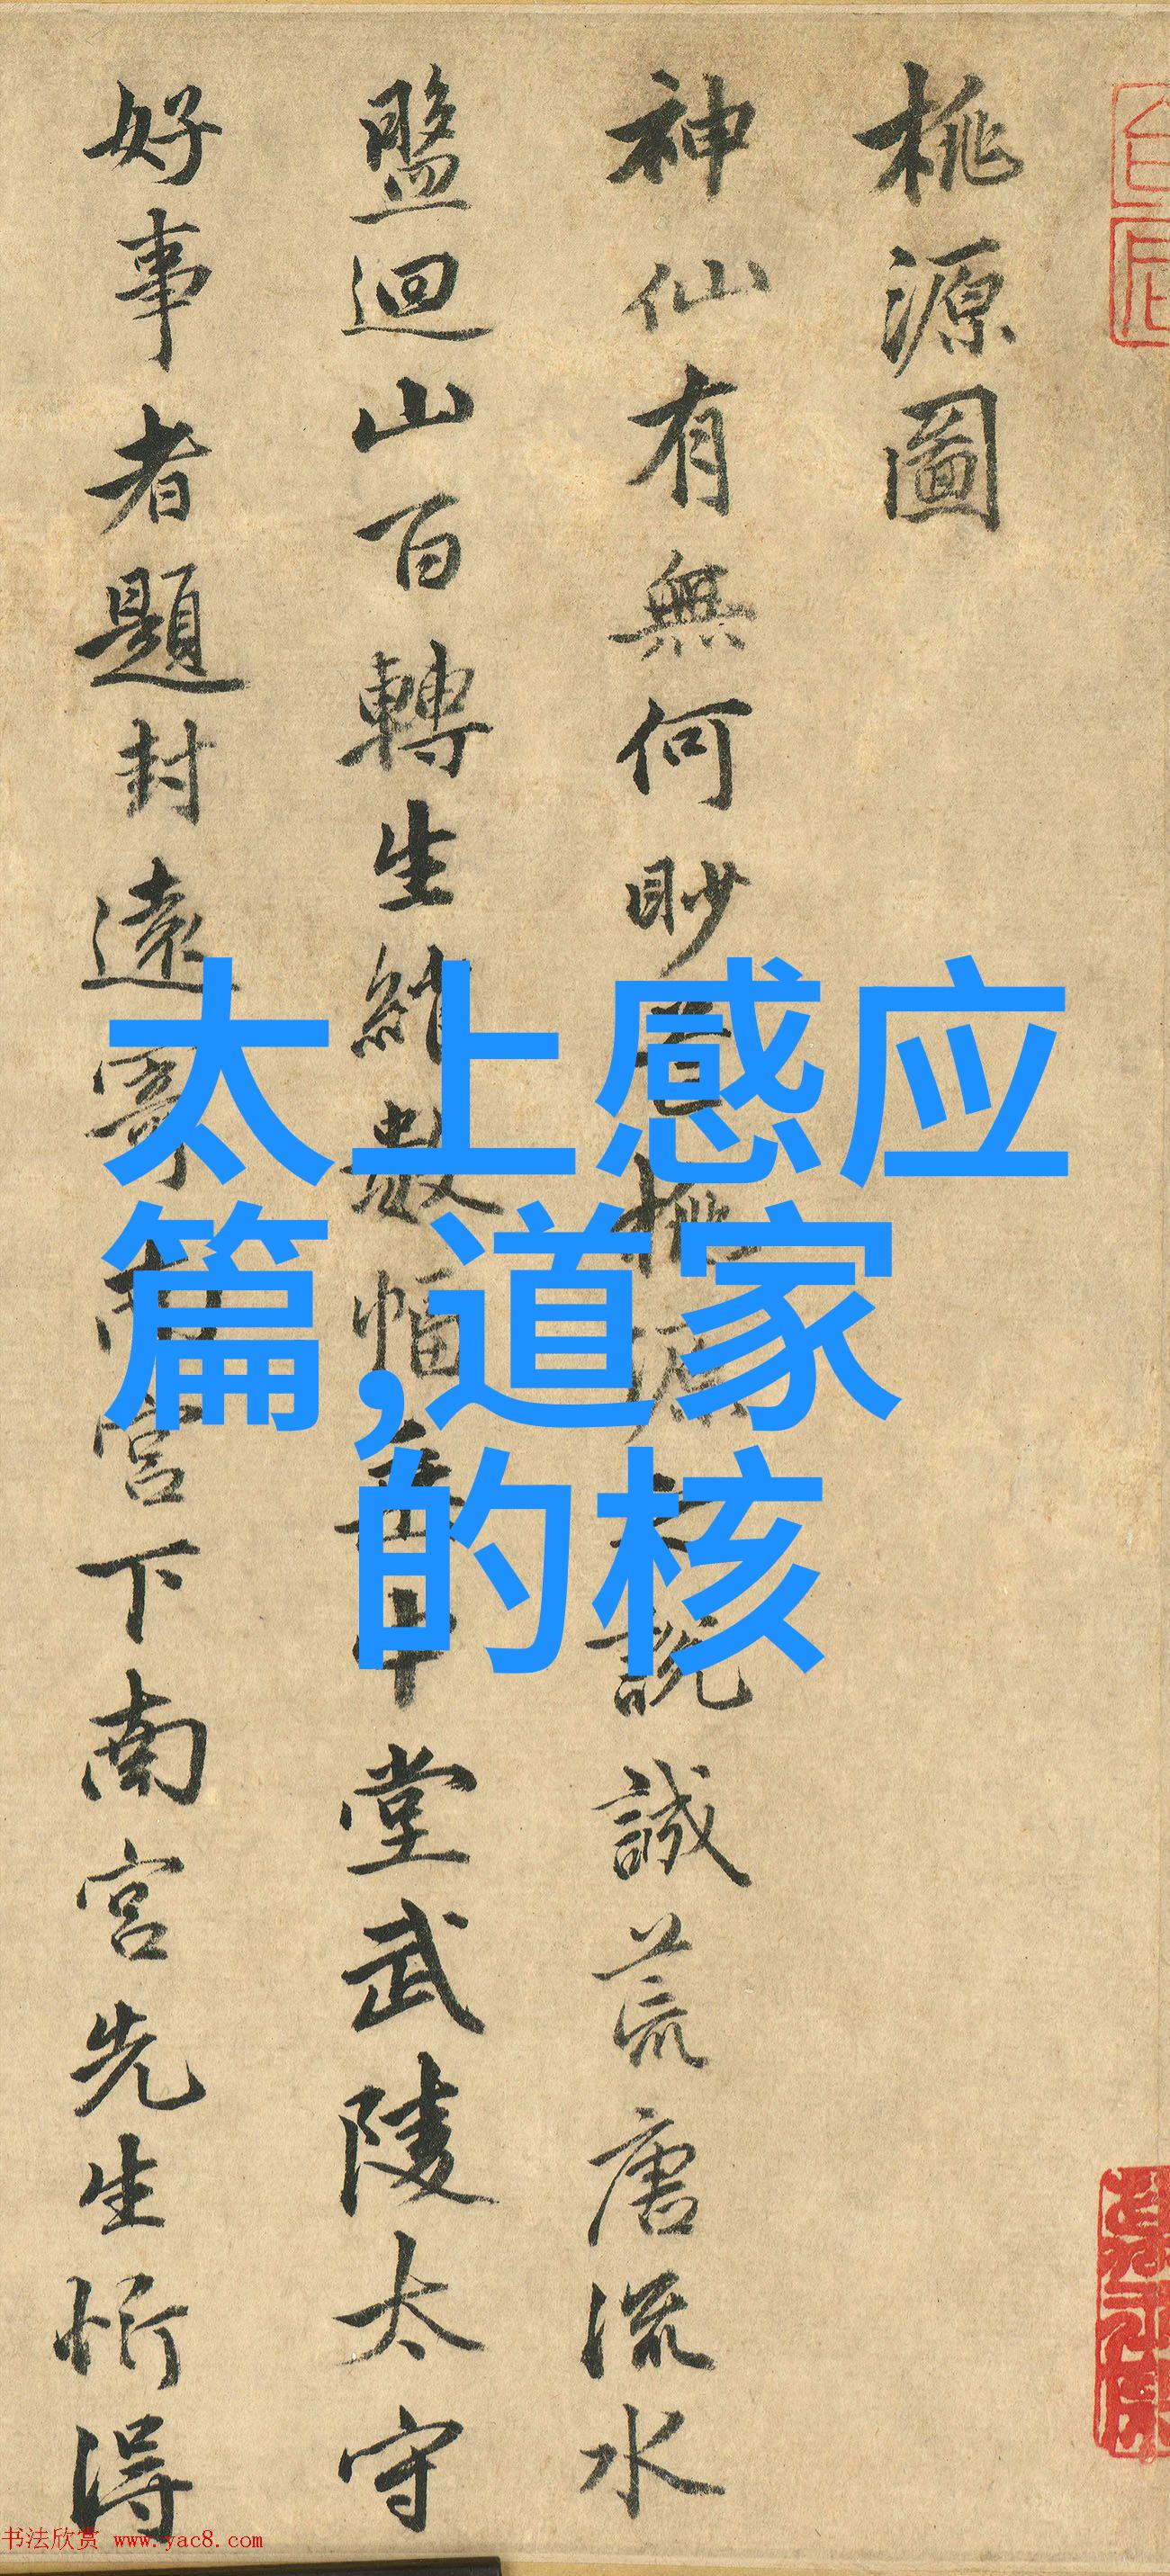 桃源圖
神仙有無何眇芒桃源之說誠荒唐流水
盤迴山百轉生綃數幅垂中堂武陵太守
好事者題封遠寄南宮下南宮先生忻得
太上感应
篇,道家
的核
书法欣赏 www.yac8.com